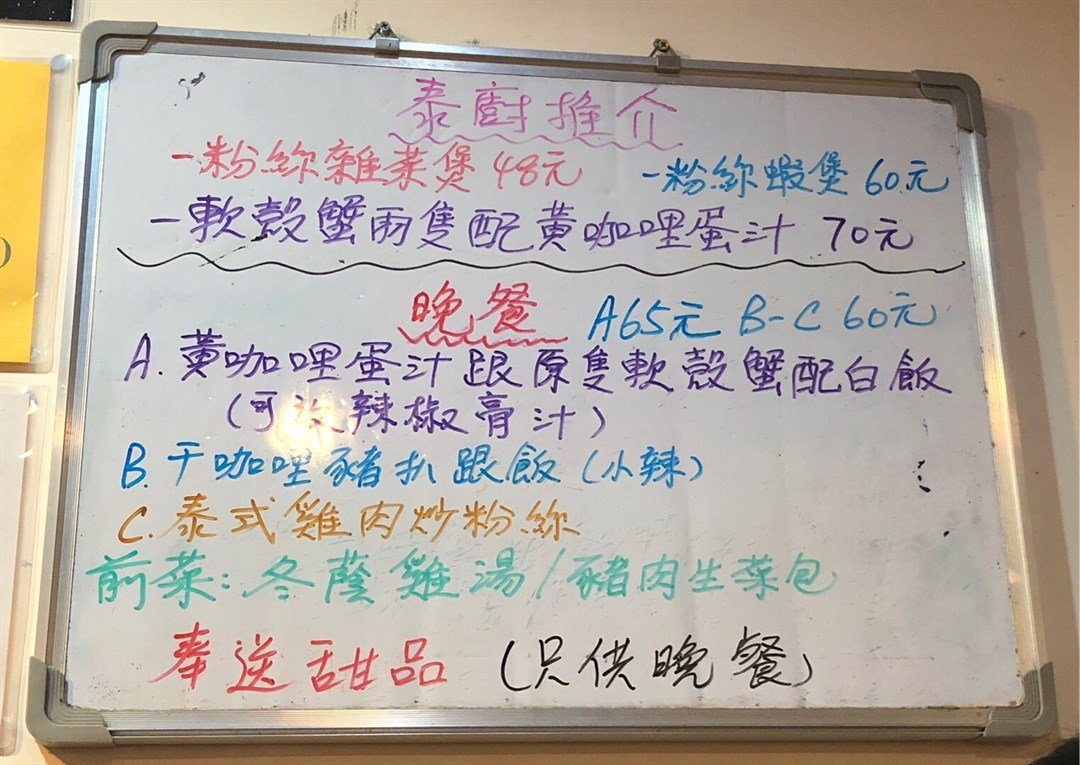 泰廚推介
-粉絲雜菜煲 48元
-粉絲蝦煲 60元
-軟殼蟹兩隻配黃咖哩蛋汁 70元
晚餐 A65元 B-C 60元
A. 黃咖哩蛋汁跟原隻軟殼蟹配白飯
(可改辣椒膏汁)
B. 干咖哩豬扒跟飯 (小辣)
C. 泰式雞肉炒粉絲
前菜: 冬蔭雞湯/豬肉生菜包
奉送甜品 (只供晚餐)